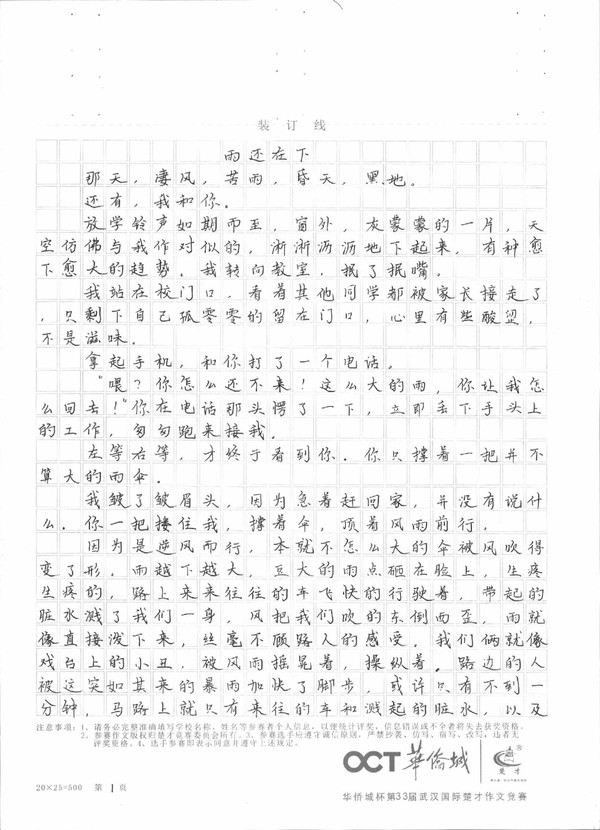 装订线
雨还在下
那天，凄风，苦雨，昏天，黑地。
还有，我和你。
放学铃声如期而至，窗外，灰蒙蒙的一片，天
空仿佛与我作对似的，淅淅沥沥地下起来，有种愈
下愈大的趋势。我转向教室，抿了抿嘴。
我站在校门口，看着其他同学都被家长接走了
，只剩下自己孤零零的留在门口，心里有些酸涩，
不是滋味。
拿起手机，和你打了一个电话。
“喂？你怎么还不来！这么大的雨，你让我怎
么回去！”你在电话那头愣了一下，立即丢下手头上
的工作，匆匆跑来接我。
左等右等，才终于看到你。你只撑着一把并不
算大的雨伞。
我皱了皱眉头，因为急着赶回家，并没有说什
么。你一把搂住我，撑着伞，顶着风雨前行。
因为是逆风而行，本就不怎么大的伞被风吹得
变了形。雨越下越大，豆大的雨点砸在脸上，生疼
生疼的，路上来来往往的车飞快的行驶着，带起的
脏水溅了我们一身，风把我们吹的东倒西歪，雨就
像直接泼下来，丝毫不顾路人的感受。我们俩就像
戏台上的小丑，被风雨摇晃着，操纵着。路边的人
被这突如其来的暴雨加快了脚步，或许只有不到一
分钟，马路上就只有来往的车和溅起的脏水，以及
注意事项：1、请务必完整准确填写学校名称、姓名等参赛者个人信息，以便统计评奖，信息错误或不全者将失去获奖资格。
2、参赛作文版权归楚才竞赛委员会所有。3、参赛选手应遵守诚信原则，严禁抄袭、仿写、宿写、改写，违者无
评奖资格。4、选手参赛即表示同意并遵守上述规定。
OCT 华侨城
楚才
20×25=500 第1页
华侨城杯第33届武汉国际楚才作文竞赛